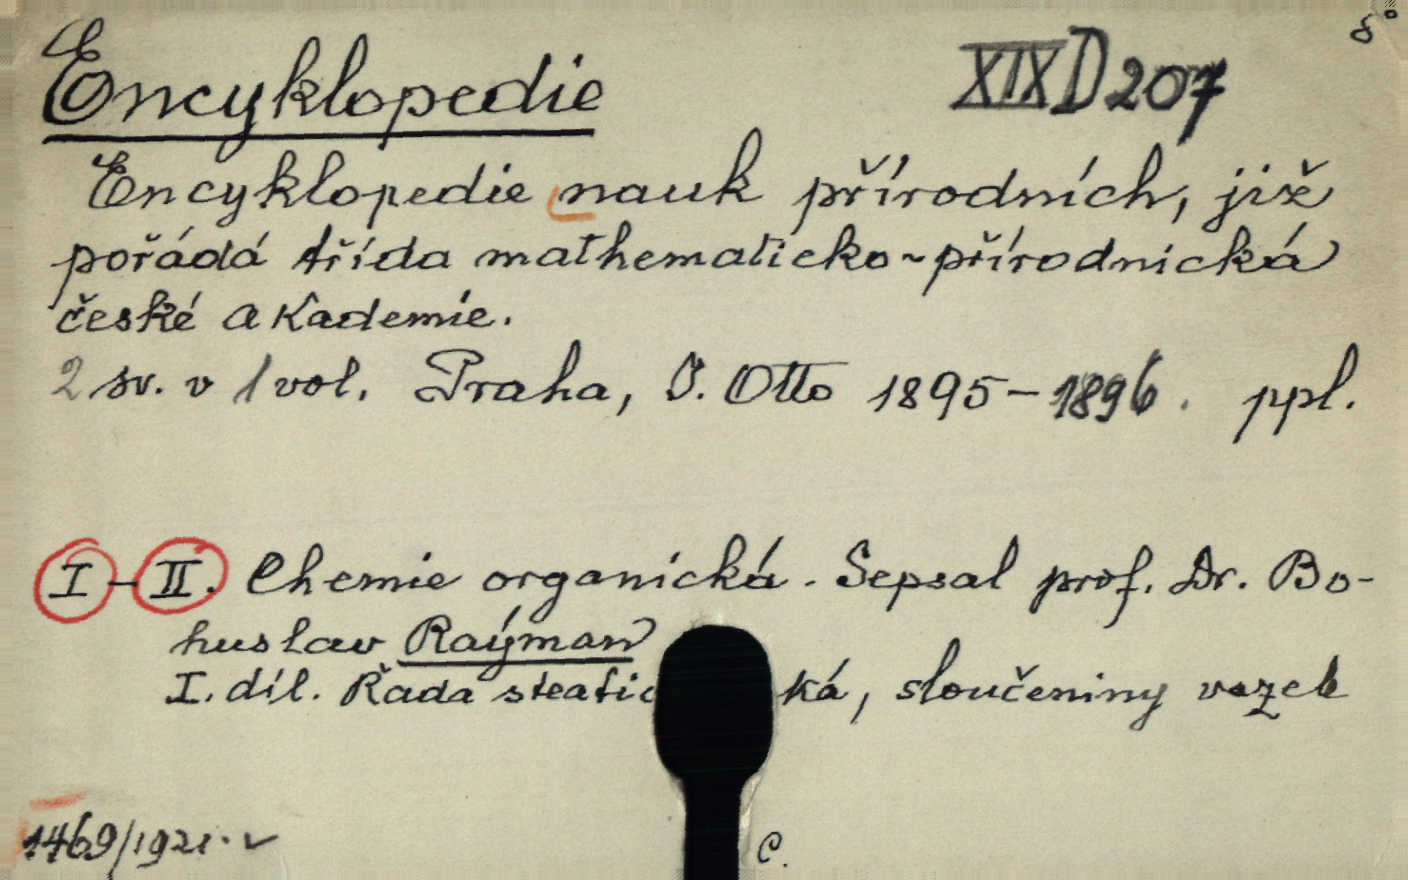 8°
Encyklopedie XIX D 207
Encyklopedie nauk přírodních, již
pořádá třída mathematicko-přírodnická
české akademie.
2 sv. v 1 vol. Praha, J. Otto 1895-1896. ppl.
I-II. Chemie organická. Sepsal prof. Dr. Bo-
huslav Raýman
I. díl. Řada steatic ká, sloučeniny vazeb
1469/1921.
C.